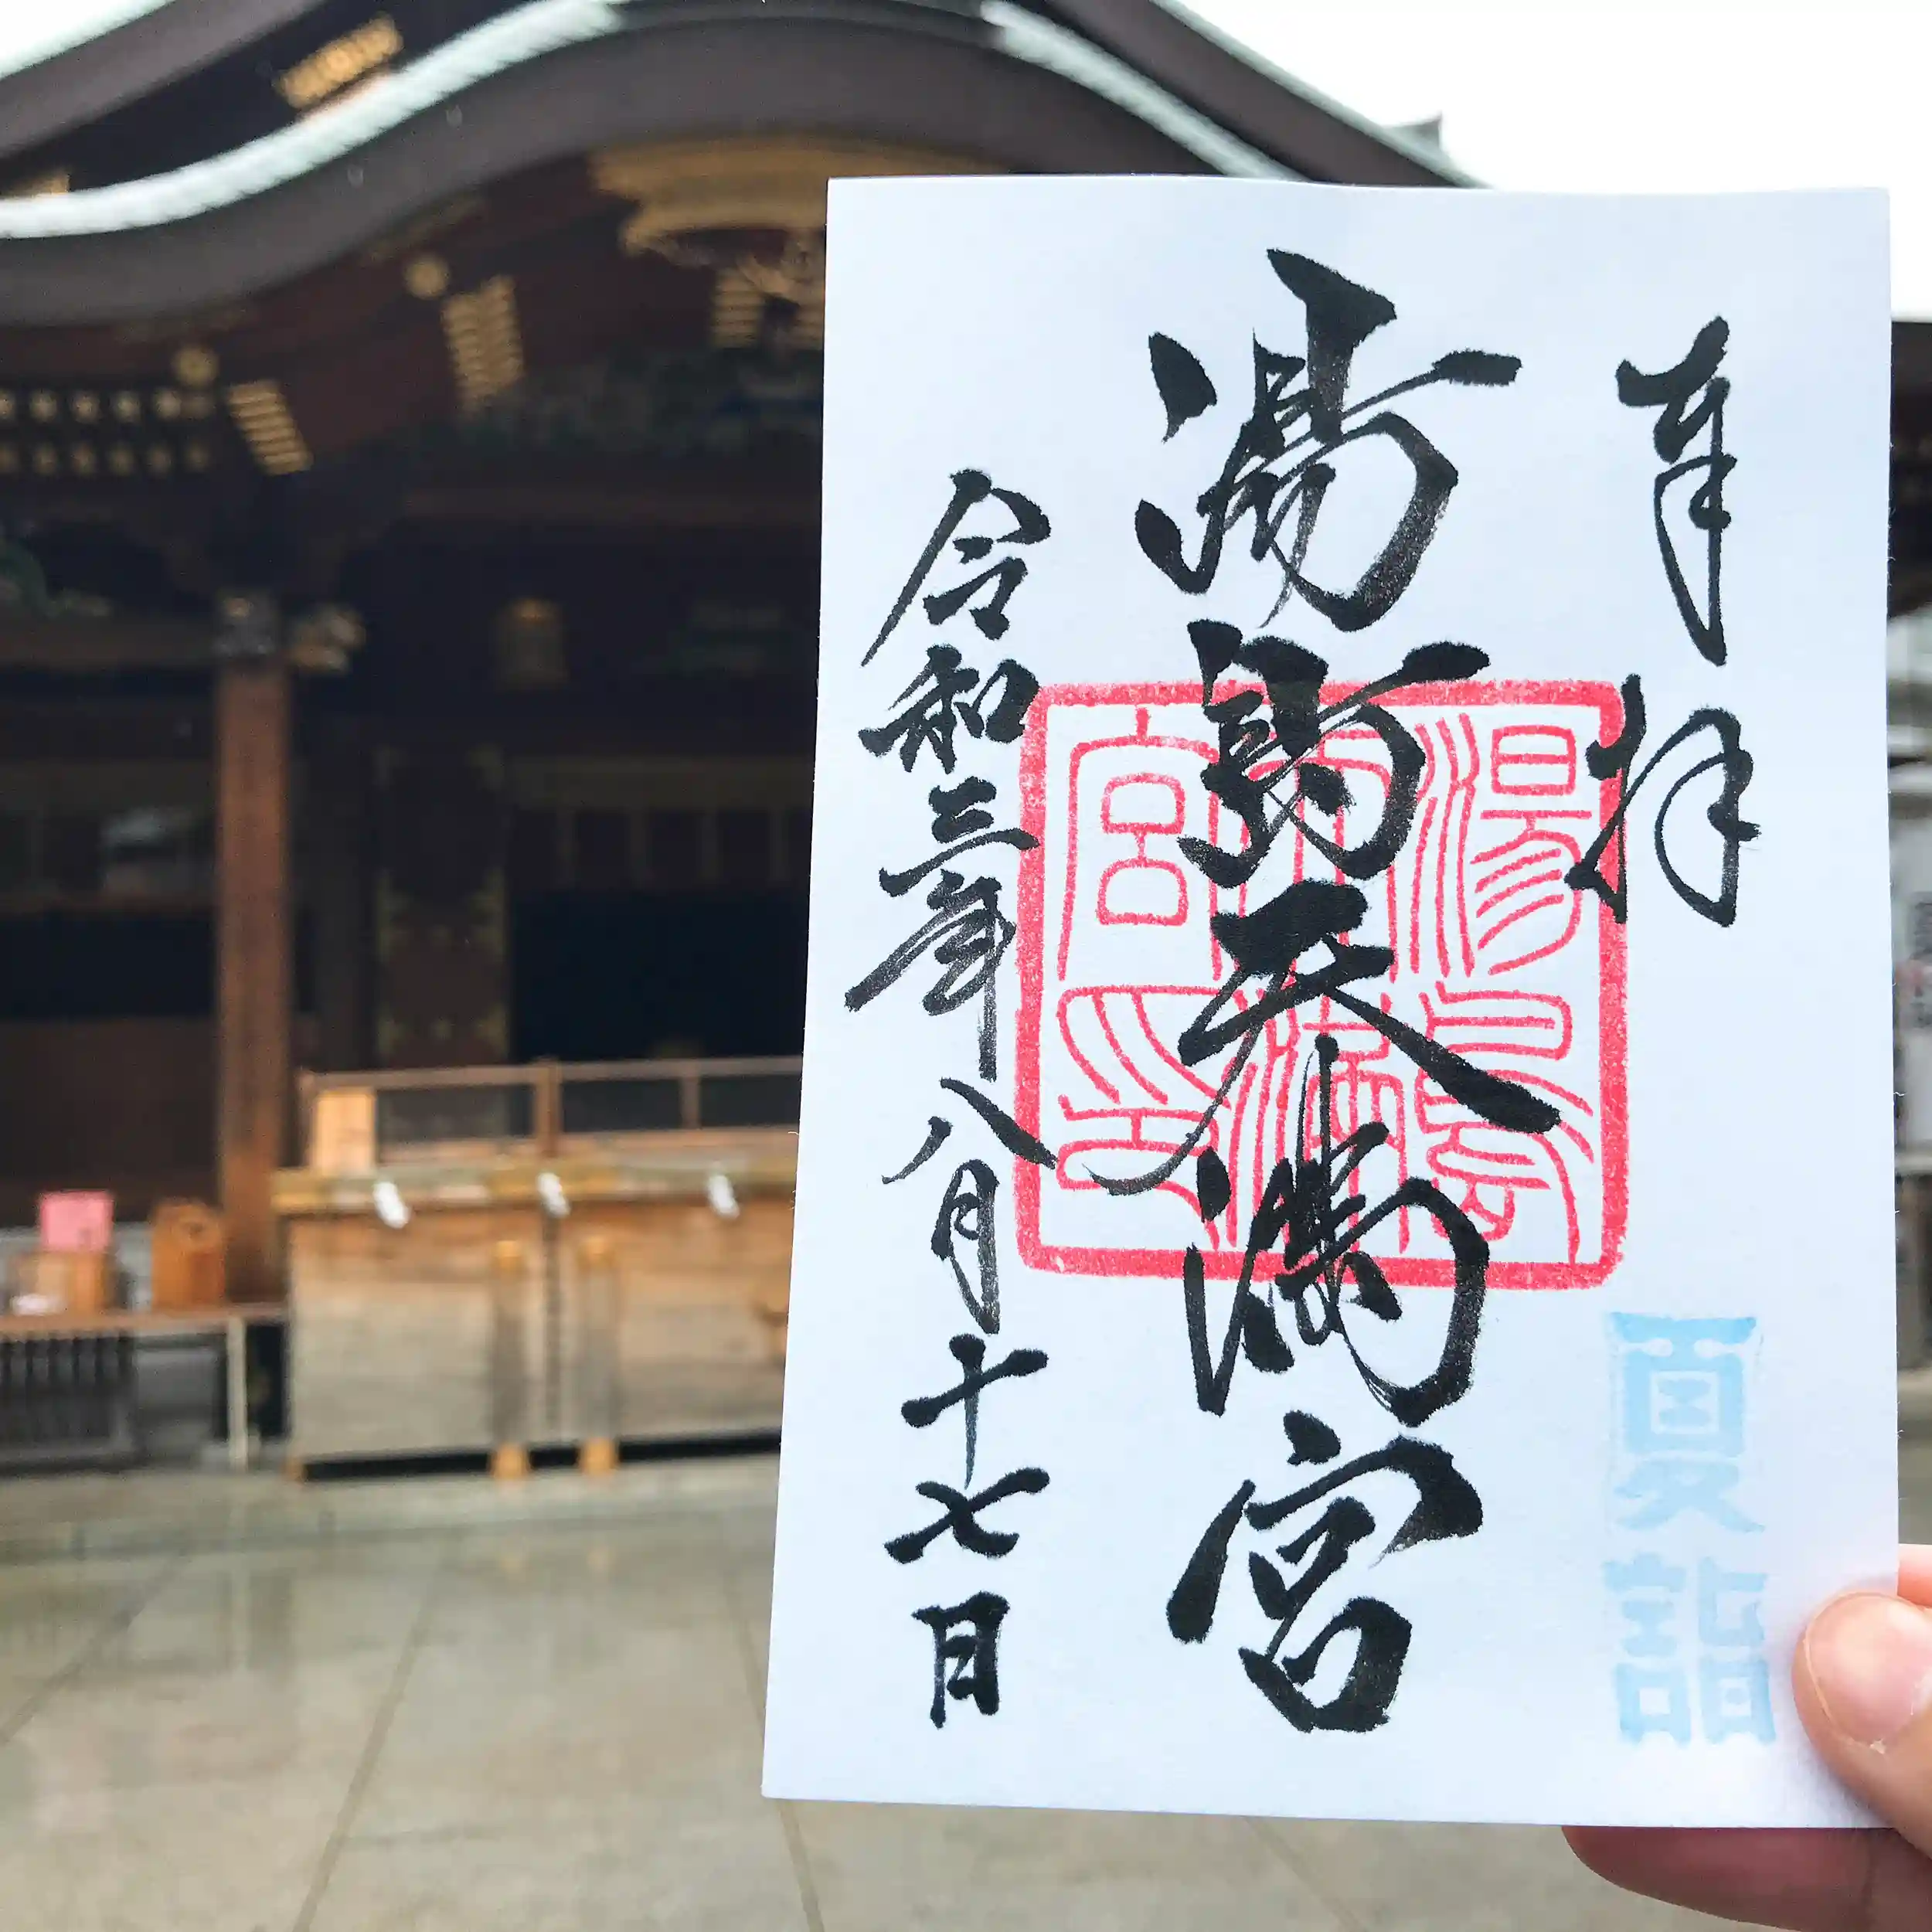 奉拝
湯島天満宮
湯島天満宮印
令和三年八月十七日
夏詣